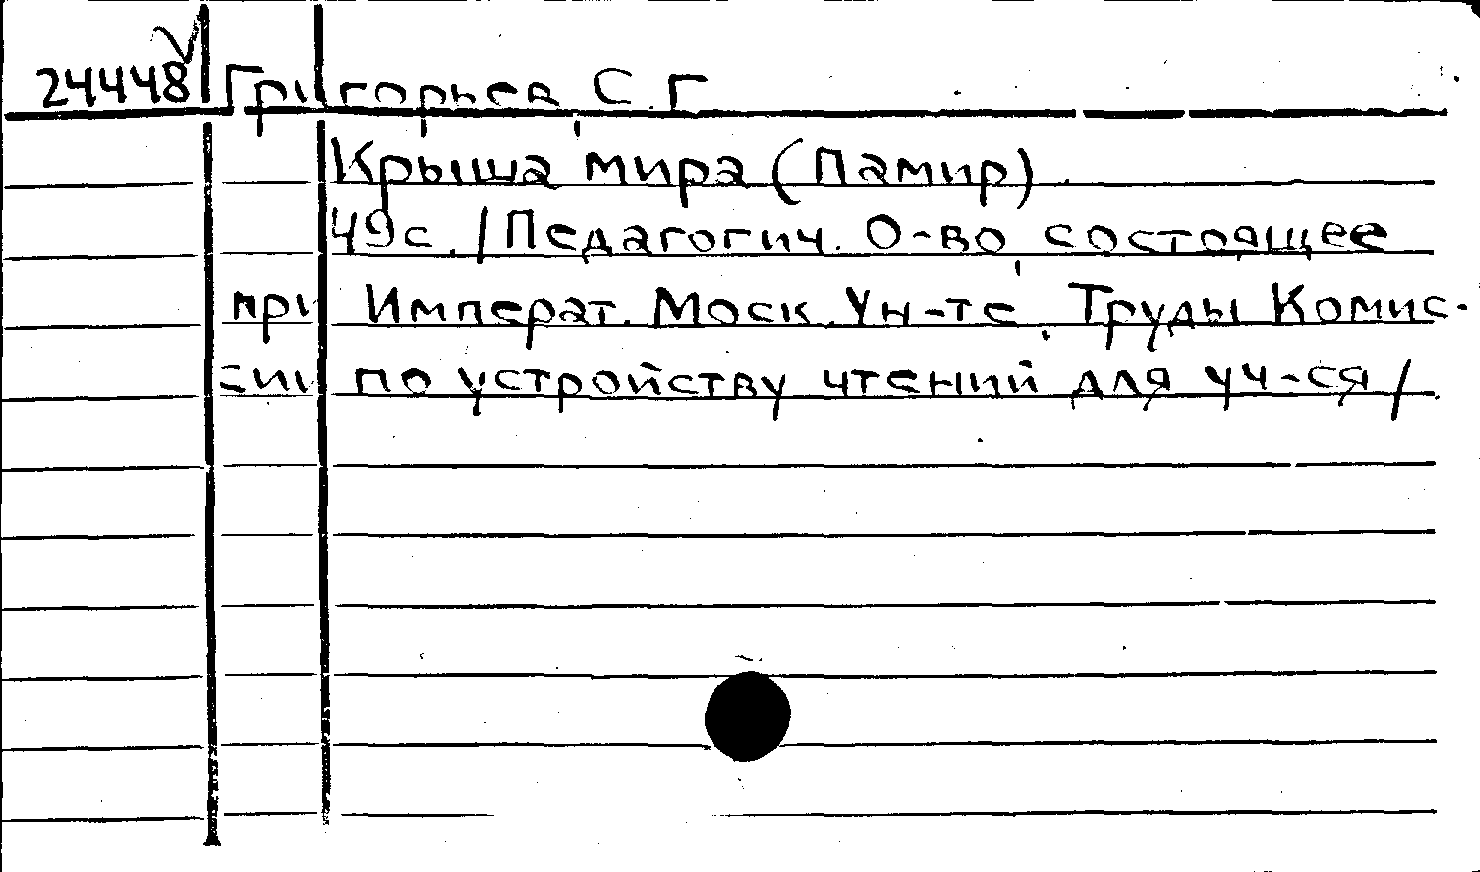 24448 Григорьев, С.Г
Крыша мира (Памир)
49с. /Педагогич. О-во, состоящее
при Императ. Моск. Ун-те. Труды Комис-
сии по устройству чтений для уч-ся/